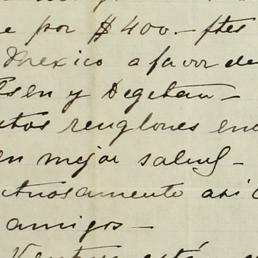 e por $400.- ftes
Mexico a favor de
Olsen y Degetau -
utos renglones enc
en mejor salud -
tuosamente asi c
amigos -
Ventura está